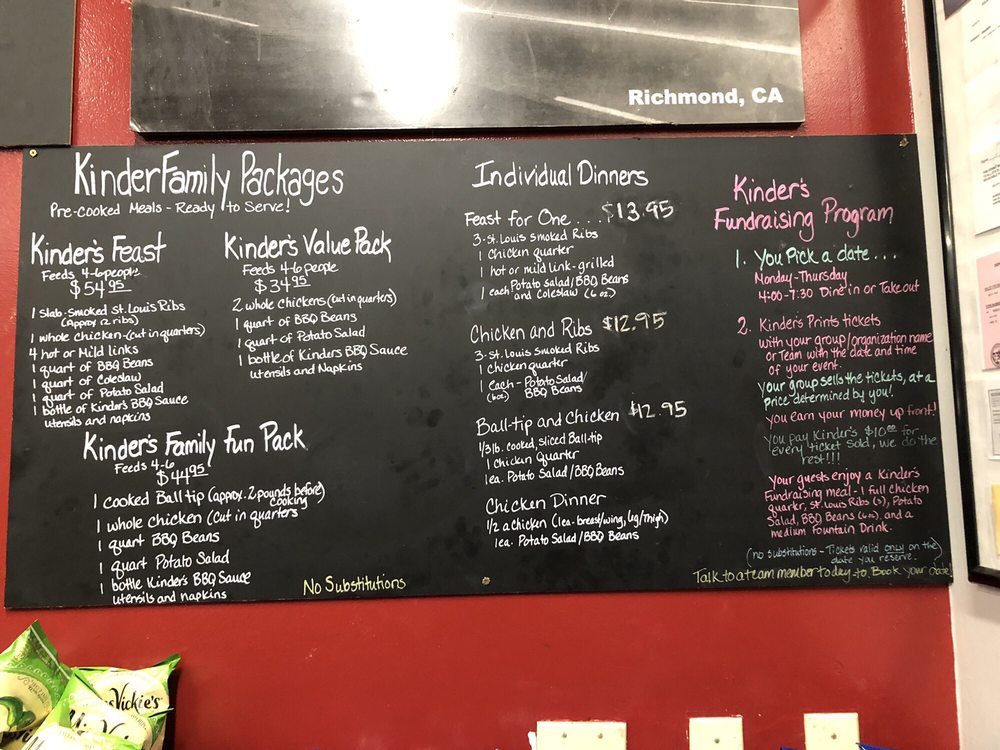 Richmond, CA
KinderFamily Packages
Pre-cooked Meals - Ready to Serve!
Kinder's Feast
Feeds 4-6 people
$54.95
1 slab-smoked St. Louis Ribs
(approx 12 ribs)
1 whole chicken-(cut in quarters)
4 hot or Mild links
1 quart of BBQ Beans
1 quart of Coleslaw
1 quart of Potato Salad
1 bottle of Kinder's BBQ Sauce
utensils and napkins
Kinder's Value Pack
Feeds 4-6 people
$34.95
2 whole chickens (cut in quarters)
1 quart of BBQ Beans
1 quart of Potato Salad
1 bottle of Kinders BBQ Sauce
utensils and Napkins
Kinder's Family Fun Pack
Feeds 4-6
$44.95
1 cooked Ball tip (approx. 2 pounds before)
cooking
1 whole chicken (cut in quarters
1 quart BBQ Beans
1 quart Potato Salad
1 bottle Kinder's BBQ Sauce
utensils and napkins
No Substitutions
Individual Dinners
Feast for One.... $13.95
3-St. Louis smoked Ribs
1 chicken quarter
1 hot or mild link-grilled
1 each Potato salad/BBQ Beans
and Coleslaw (6 oz.)
Chicken and Ribs $12.95
3-St. Louis smoked Ribs
1 chicken quarter
1 each - Potato Salad/
(6oz) BBQ Beans
Ball-tip and Chicken $12.95
1/3 lb. cooked, sliced Ball-tip
1 Chicken Quarter
1ea. Potato Salad/BBQ Beans
Chicken Dinner
1/2 a Chicken (1ea-breast/wing, leg/thigh)
1ea. Potato Salad/BBQ Beans
Kinder's
Fundraising Program
1. You Pick a date...
Monday-Thursday
4:00-7:30 Dine in or Take out
2. Kinder's Prints tickets
with your group/organization name
or Team with the date and time
of your event.
your group sells the tickets, at a
price determined by you!
you earn your money up front!
you pay Kinder's $10.00 for
every ticket sold, we do the
rest!!!
your guests enjoy a Kinder's
Fundraising meal - 1 full Chicken
quarter, St. Louis Ribs (3), Potato
Salad, BBQ Beans (6oz), and a
medium fountain Drink.
(no substitutions - Tickets valid only on the
date you reserve.
Talk to a team member today to Book your date!
Vickie's